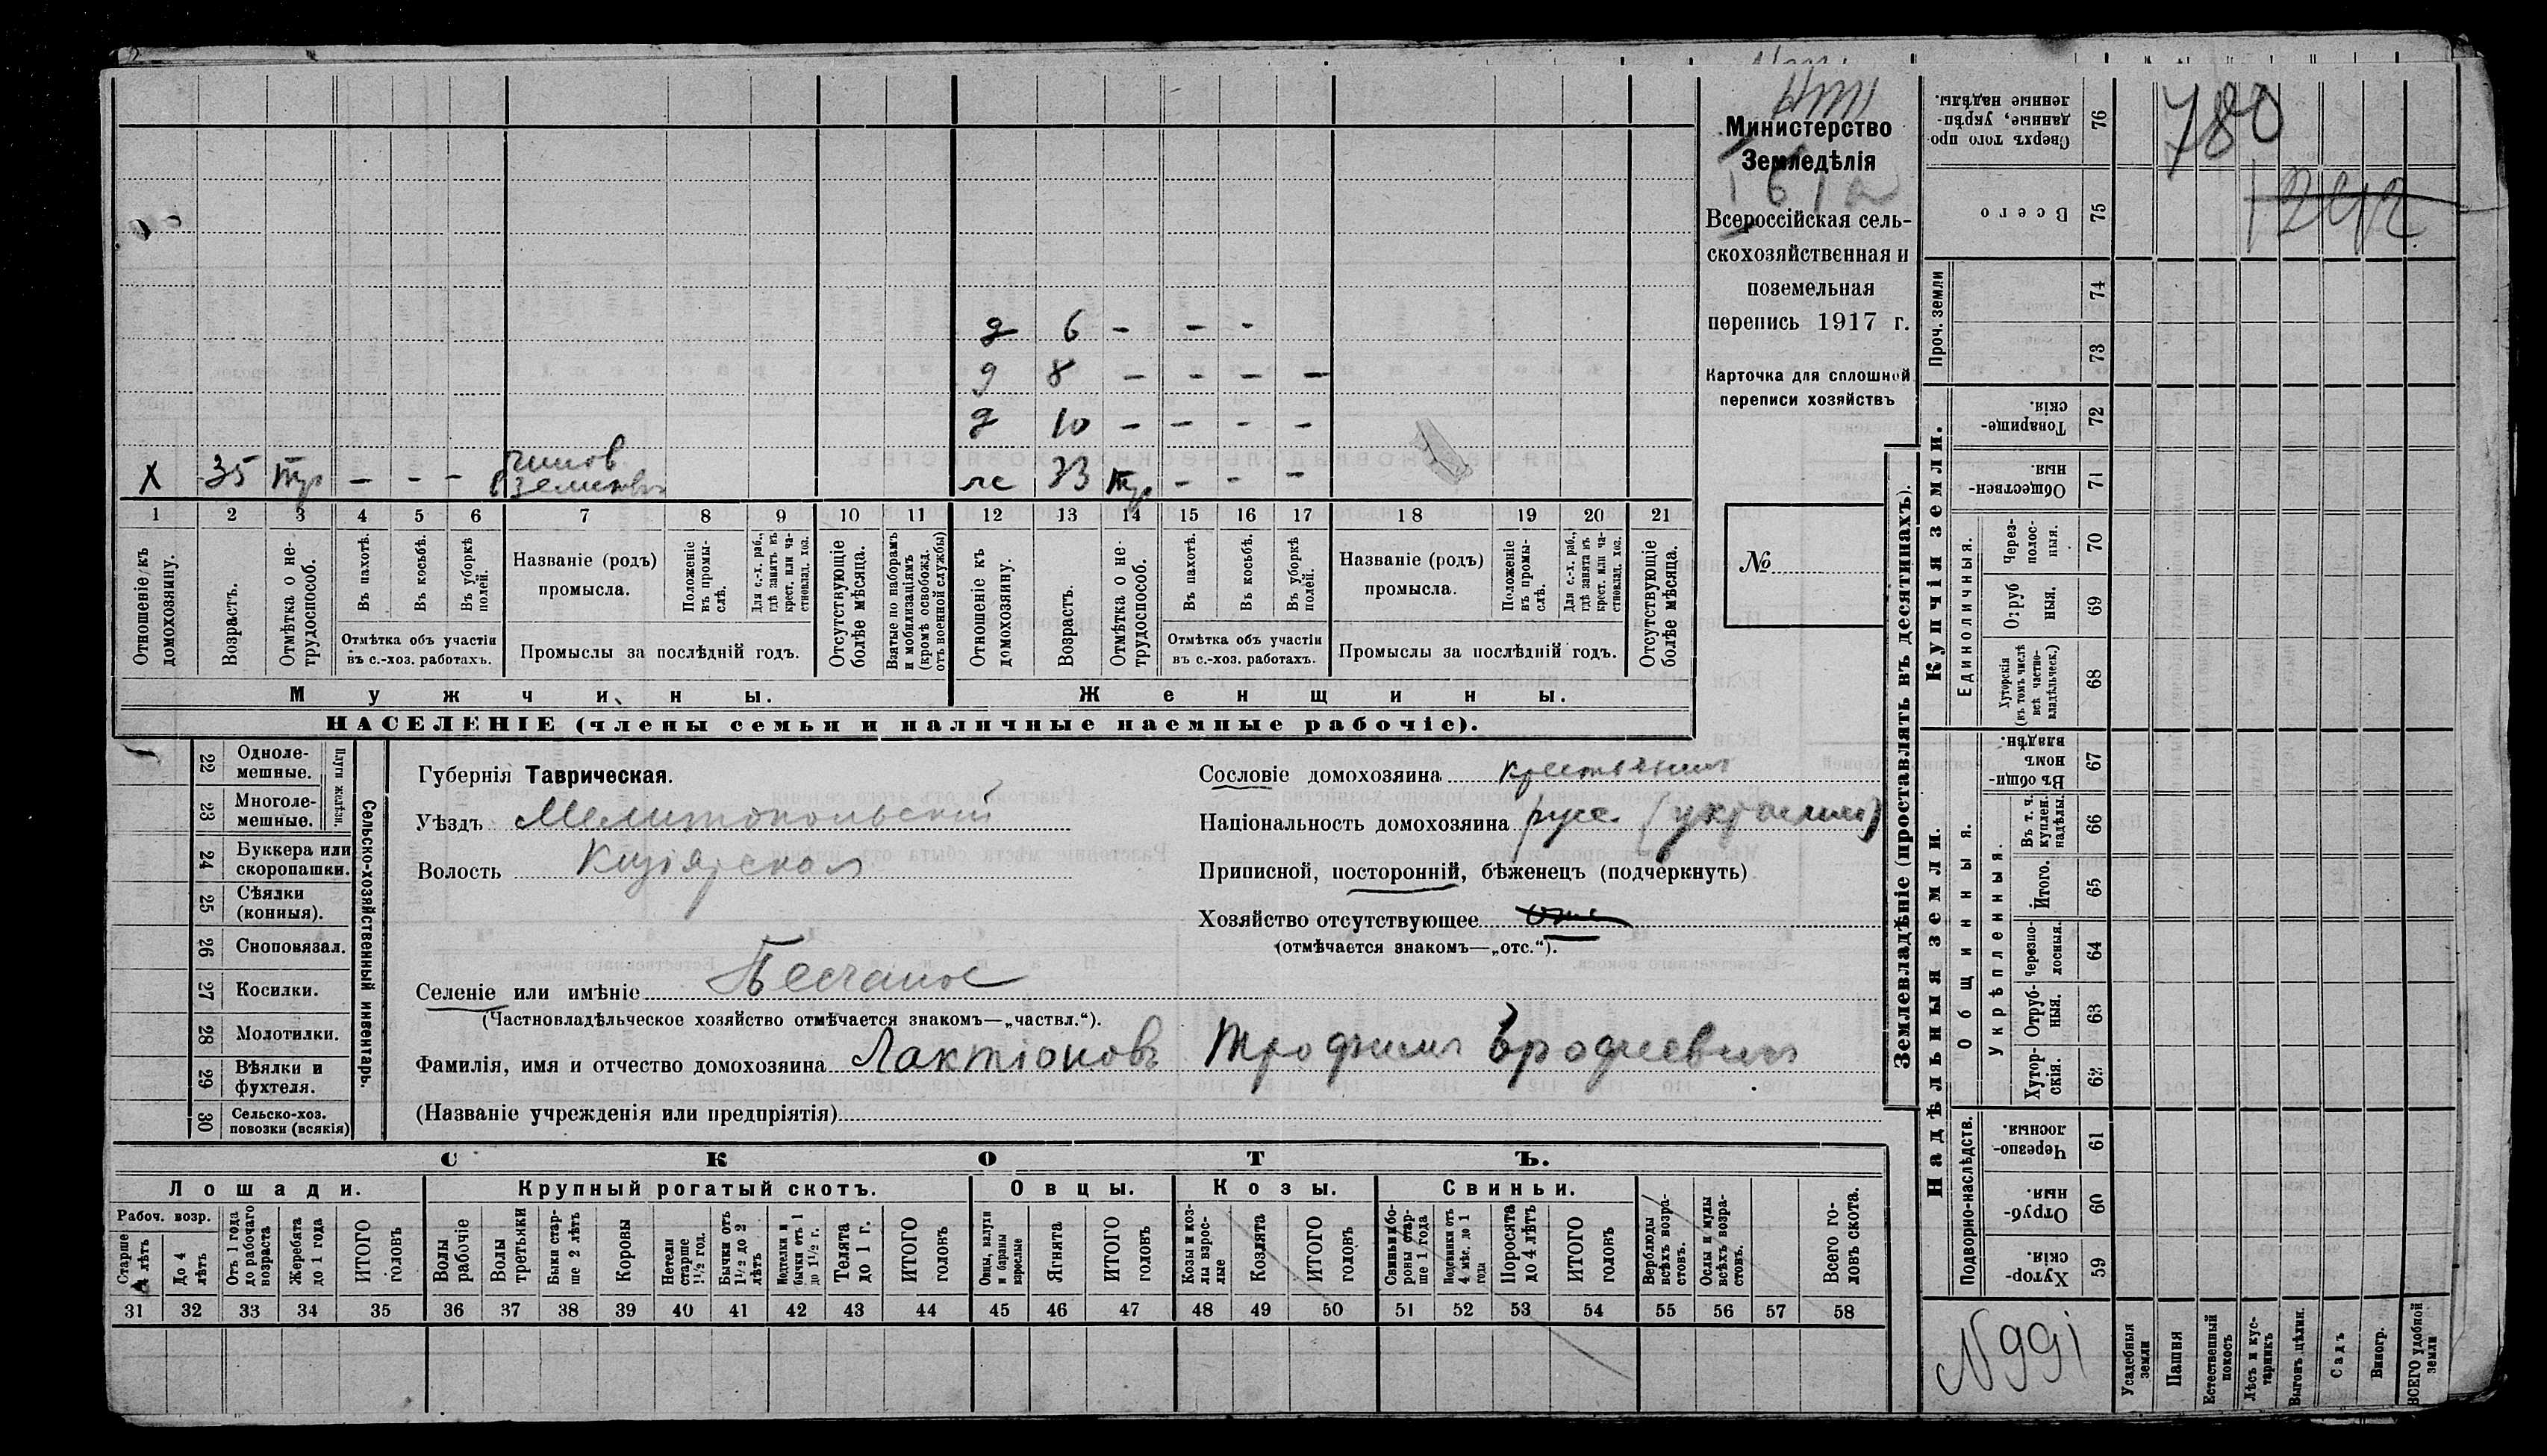 780
1242
Министерство
Земледѣлія
Всероссійская сель-
скохозяйственная и
поземельная
перепись 1917 г.
Карточка для сплошной
переписи хозяйствъ
№
д 6 - - -
д 8 - - - -
д 10 - - - -
х 35 тр - - - чинов в земствѣ
ж 33 тр - - -
1 2 3 4 5 6 7 8 9 10 11 12 13 14 15 16 17 18 19 20 21
Отношеніе къ домохозяину.
Возрастъ.
Отмѣтка о не-трудоспособ.
Въ пахотѣ.
Въ косьбѣ.
Въ уборкѣ полей.
Отмѣтка объ участіи
въ с.-хоз. работахъ.
Названіе (родъ)
промысла.
Положеніе въ промы-слѣ.
Для с.-х. раб., гдѣ занятъ въ крест. или ча-стновлад. хоз.
Промыслы за послѣдній годъ.
Отсутствующіе болѣе мѣсяца.
Взятые по наборамъ и мобилизаціямъ (кромѣ освобожд. отъ военной службы)
Отношеніе къ домохозяину.
Возрастъ.
Отмѣтка о не-трудоспособ.
Въ пахотѣ.
Въ косьбѣ.
Въ уборкѣ полей.
Отмѣтка объ участіи
въ с.-хоз. работахъ.
Названіе (родъ)
промысла.
Положеніе въ промы-слѣ.
Для с.-х. раб., гдѣ занята въ крест. или ча-стновлад. хоз.
Промыслы за послѣдній годъ.
Отсутствующіе болѣе мѣсяца.
Мужчины.
Женщины.
НАСЕЛЕНІЕ (члены семьи и наличные наемные рабочіе).
22 Одноле-мешные.
23 Многоле-мешные.
Плуги желѣзн.
24 Буккера или скоропашки.
25 Сѣялки (конныя).
26 Сноповязал.
27 Косилки.
28 Молотилки.
29 Вѣялки и фухтеля.
30 Сельско-хоз. повозки (всякія)
Сельско-хозяйственный инвентарь.
Губернія Таврическая.
Уѣздъ Мелитопольскій
Волость Кизіярская
Селеніе или имѣніе Песчаное
(Частновладѣльческое хозяйство отмѣчается знакомъ—„частвл.“).
Фамилія, имя и отчество домохозяина Лактіоновъ Трофимъ Ерофеевичъ
(Названіе учрежденія или предпріятія)
Сословіе домохозяина крестьянинъ
Національность домохозяина русс. (украинец)
Приписной, посторонній, бѣженецъ (подчеркнуть)
Хозяйство отсутствующее отс
(отмѣчается знакомъ—„отс.“).
СКОТЪ.
Лошади.
Крупный рогатый скотъ.
Овцы.
Козы.
Свиньи.
Рабоч. возр.
Старше 4 лѣтъ
До 4 лѣтъ
Отъ 1 года до рабочаго возраста
Жеребята до 1 года
ИТОГО головъ
Волы рабочіе
Волы третьяки
Быки стар-ше 2 лѣтъ
Коровы
Нетели старше 1½ год.
Бычки отъ 1½ до 2 лѣтъ
Подтелки и бычки отъ 1 до 1½ г.
Телята до 1 г.
ИТОГО головъ
Овцы, валухи и бараны взрослые
Ягнята
ИТОГО головъ
Козы и коз-лы взрос-лые
Козлята
ИТОГО головъ
Свиньи и бо-ровы стар-ше 1 года
Подсвинки отъ 4 мѣс. до 1 года
Поросята до 4 лѣтъ
ИТОГО головъ
Верблюды всѣхъ возра-стовъ.
Ослы и мулы всѣхъ возра-стовъ.
Всего го-ловъ скота.
31 32 33 34 35 36 37 38 39 40 41 42 43 44 45 46 47 48 49 50 51 52 53 54 55 56 57 58
Землевладѣніе (проставлять въ десятинахъ).
Купчія земли.
Надѣльныя земли.
Сверхъ того про-данные, укрѣп-ленные надѣлы. 76
Всего 75
Проч. земли
74
73
Товарище-скія. 72
Обществен-ныя. 71
Единоличныя.
Через-полос-ныя. 70
Отруб-ныя. 69
Хуторскія (въ томъ числѣ всѣ частно-владѣльческ.) 68
Въ общин-номъ владѣн. 67
Общинныя.
Укрѣпленныя.
Въ т. ч. куплен. надѣлы. 66
Итого. 65
Черезпо-лосныя. 64
Отруб-ныя. 63
Хутор-скія. 62
Подворно-наслѣдств.
Черезпо-лосныя. 61
Отруб-ныя. 60
Хутор-скія. 59
N991
Усадебныя земли
Пашня
Естественный покосъ
Лѣсъ и кус-тарникъ
Выгонъ цѣлин.
Садъ
Виногр.
ВСЕГО удобной земли